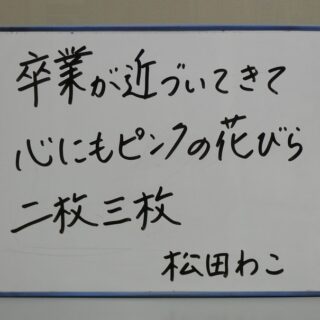 卒業が近づいてきて
心にもピンクの花びら
二枚三枚
松田わこ